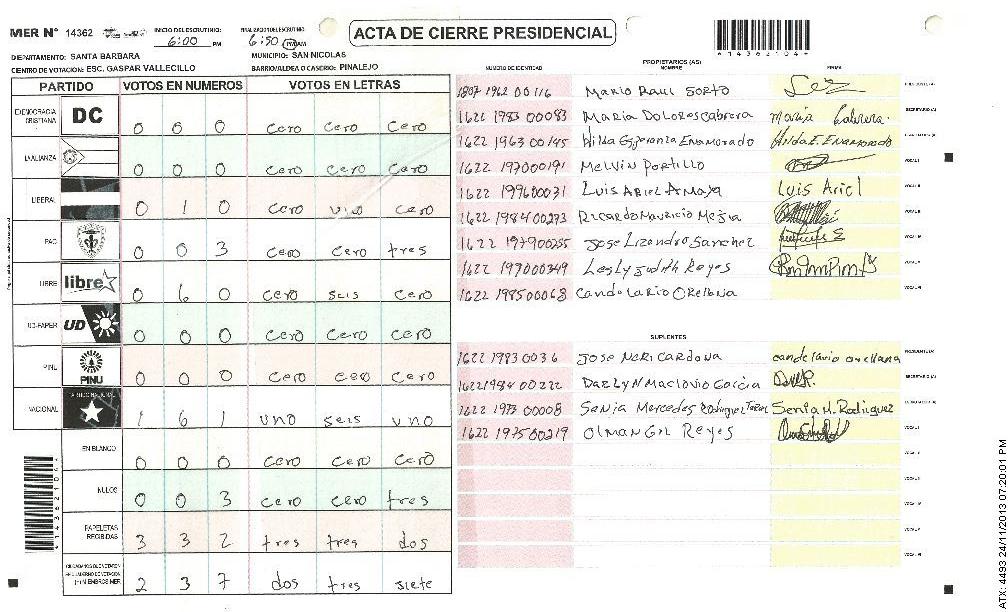 MER N° 14362
INICIO DEL ESCRUTINIO:
6:00 PM
FINALIZACION DEL ESCRUTINIO:
6:50 PM
ACTA DE CIERRE PRESIDENCIAL
4143621044
DEPARTAMENTO: SANTA BARBARA
MUNICIPIO: SAN NICOLAS
CENTRO DE VOTACION: ESC. GASPAR VALLECILLO
BARRIO/ALDEA O CASERIO: PINALEJO
PARTIDO VOTOS EN NUMEROS VOTOS EN LETRAS
DEMOCRACIA CRISTIANA DC 0 0 0 cero cero cero
LA ALIANZA 0 0 0 cero cero cero
LIBERAL 0 1 0 cero uno cero
PAC 0 0 3 cero cero tres
LIBRE libre 0 6 0 cero seis cero
UD-FAPER UD 0 0 0 cero cero cero
PINU PINU 0 0 0 cero cero cero
NACIONAL 1 6 1 uno seis uno
EN BLANCO 0 0 0 cero cero cero
NULOS 0 0 3 cero cero tres
PAPELETAS RECIBIDAS 3 3 2 tres tres dos
2 3 7 dos tres siete
PROPIETARIOS (AS)
NUMERO DE IDENTIDAD NOMBRE FIRMA
1807 1962 00116 Mario Raul Sorto
1622 1983 00083 Maria Dolores Cabrera Maria Cabrera
1622 1963 00145 Hilda Esperanza Enamorado Hilda E. Enamorado
1622 197000191 Melvin Portillo
1622 199600031 Luis Ariel Amaya Luis Ariel
1622 1984 00293 Ricardo Mauricio Mejia
1622 197900255 Jose Lizandro Sanchez
1622 199000349 Lesly Judith Reyes
1622 198500068 Candelario Orellana
SUPLENTES
1622 1983 0036 Jose Neri Cardona candelario orellana
1622 1984 00222 Darlyn Maclovio Garcia
1622 1973 00008 Sonia Mercedes Rodriguez Sonia M. Rodriguez
1622 197500219 Olman Gil Reyes
ATX: 4493 24/11/2013 07:20:01 PM